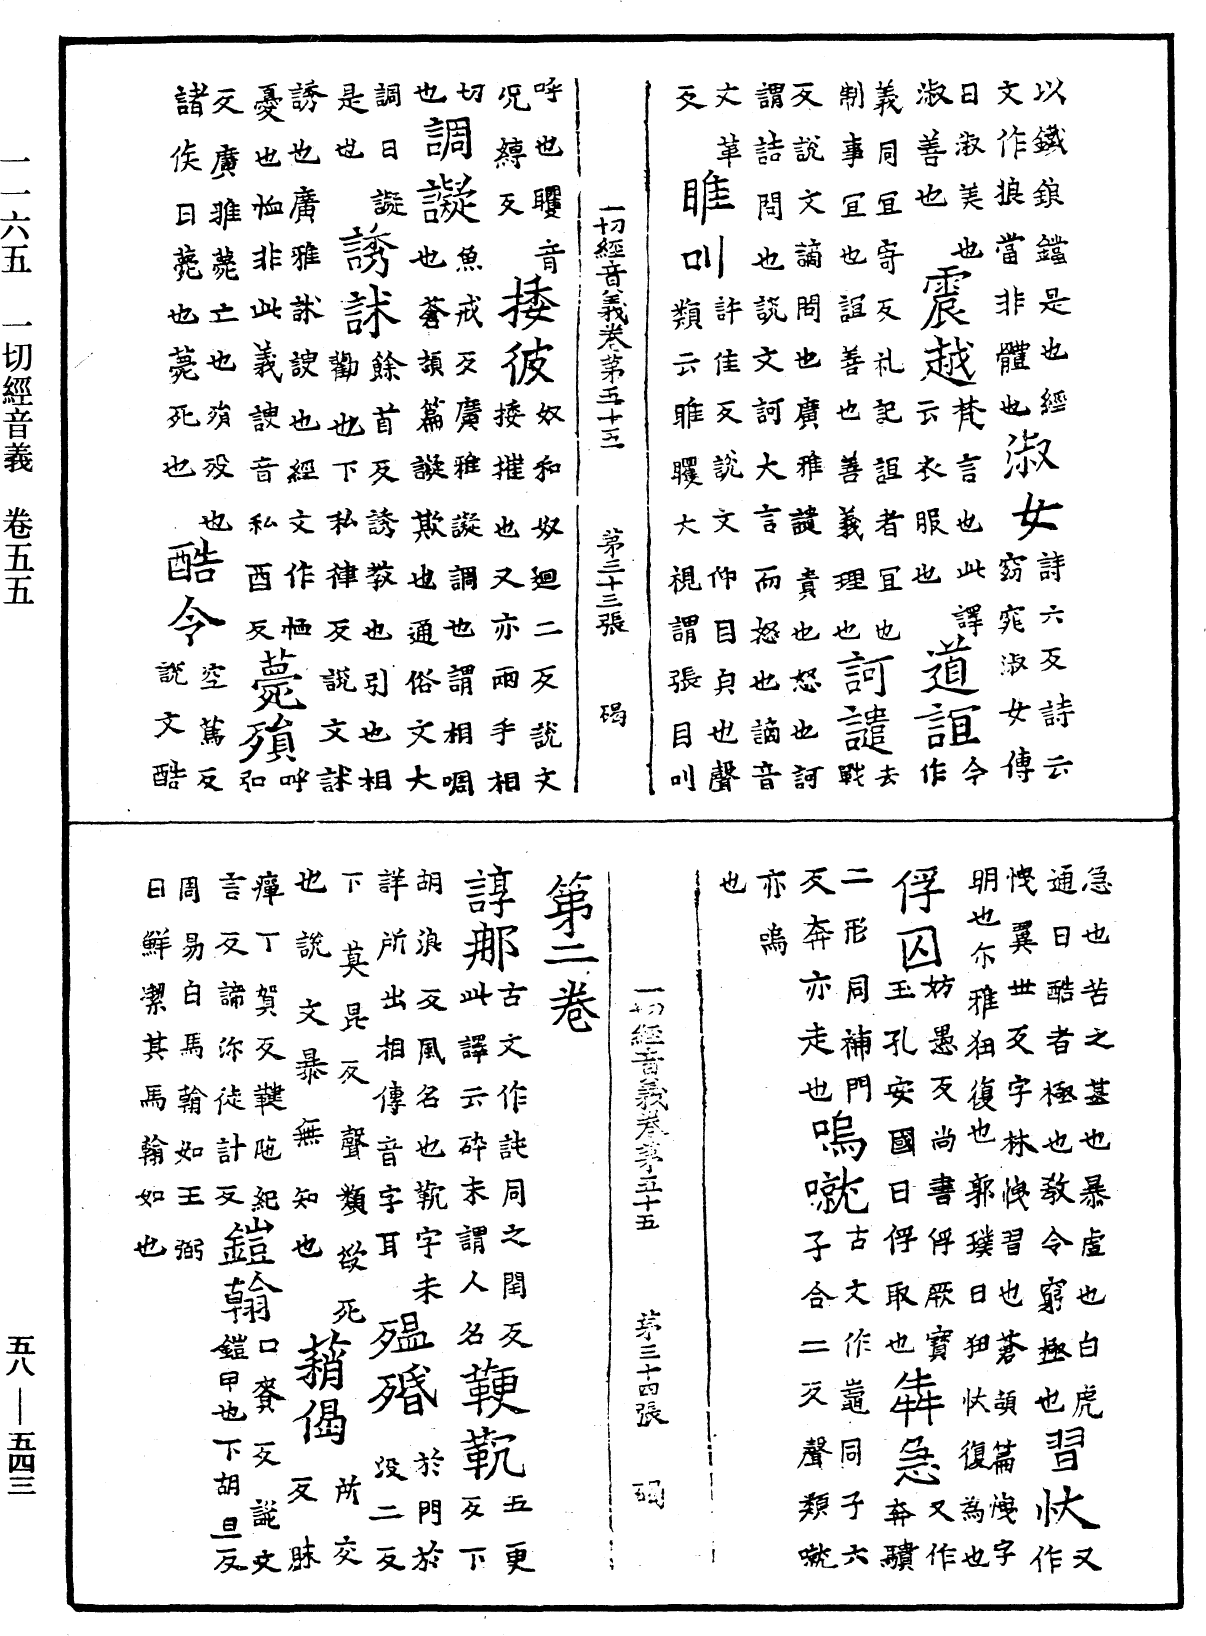 以鐵鋃鐺是也經
文作狼當非體也
淑女
詩六反詩云
窈窕淑女傳
曰淑美也
淑善也
震越
梵言也此譯
云衣服也
道誼
今作
義同宜寄反礼記誼者宜也去
制事宜也誼善也善義理也
訶譴
戰
反說文謫問也廣雅譴責也怒也訶
謂詰問也說文訶大言而怒也謫音
丈革
反
睢叫
許佳反說文仰目皃也聲
類云睢矍大視謂張目叫
一切經音義卷第五十五 第三十三張 碣
呼也矍音
況縛反
捼彼
奴和奴迴二反說文
捼摧也又亦兩手相
切
也
調譺
魚戒反廣雅譺調也謂相啁
也蒼頡篇譺欺也通俗文大
調曰譺
是也
誘訹
餘首反誘教也引也相
勸也下私律反說文訹
誘也廣雅訹謏也經文作恓
憂也恤非此義謏音私酉反
薨殞
呼弘
反廣雅薨亡也殞歿也
諸侯曰薨也薨死也
酷令
空篤反
說文酷
急也苦之甚也暴虐也白虎
通曰酷者極也教令窮極也
習忕
又作
愧翼世反字林愧習也蒼頡篇愧字
明也尒雅狃復也郭璞曰狃忕復為也
俘囚
妨愚反尚書俘厥寶
玉孔安國曰俘取也
犇急
又作奔驞
二形同補門
反奔亦走也
嗚噈
古文作嚻同子六
子合二反聲類噈
亦嗚
也
一切經音義卷第五十五 第三十四張 碣
第二卷
諄那
古文作訰同之閏反
此譯云碎末謂人名
鞕䩑
五更
反下
胡浪反風名也䩑字未
詳所出相傳音字耳
殟殙
於門於
歿二反
下莫昆反聲類欲死
也說文暴無知也
䔠偈
所交
反脒
癉丁賀反鞬陁紀
言反諦沵徒計反
鎧翰
口賫反說文
鎧甲也下胡旦反
周易白馬翰如王弼
曰鮮潔其馬翰如也
一一六五 一切經音義 卷五五
五八—五四三